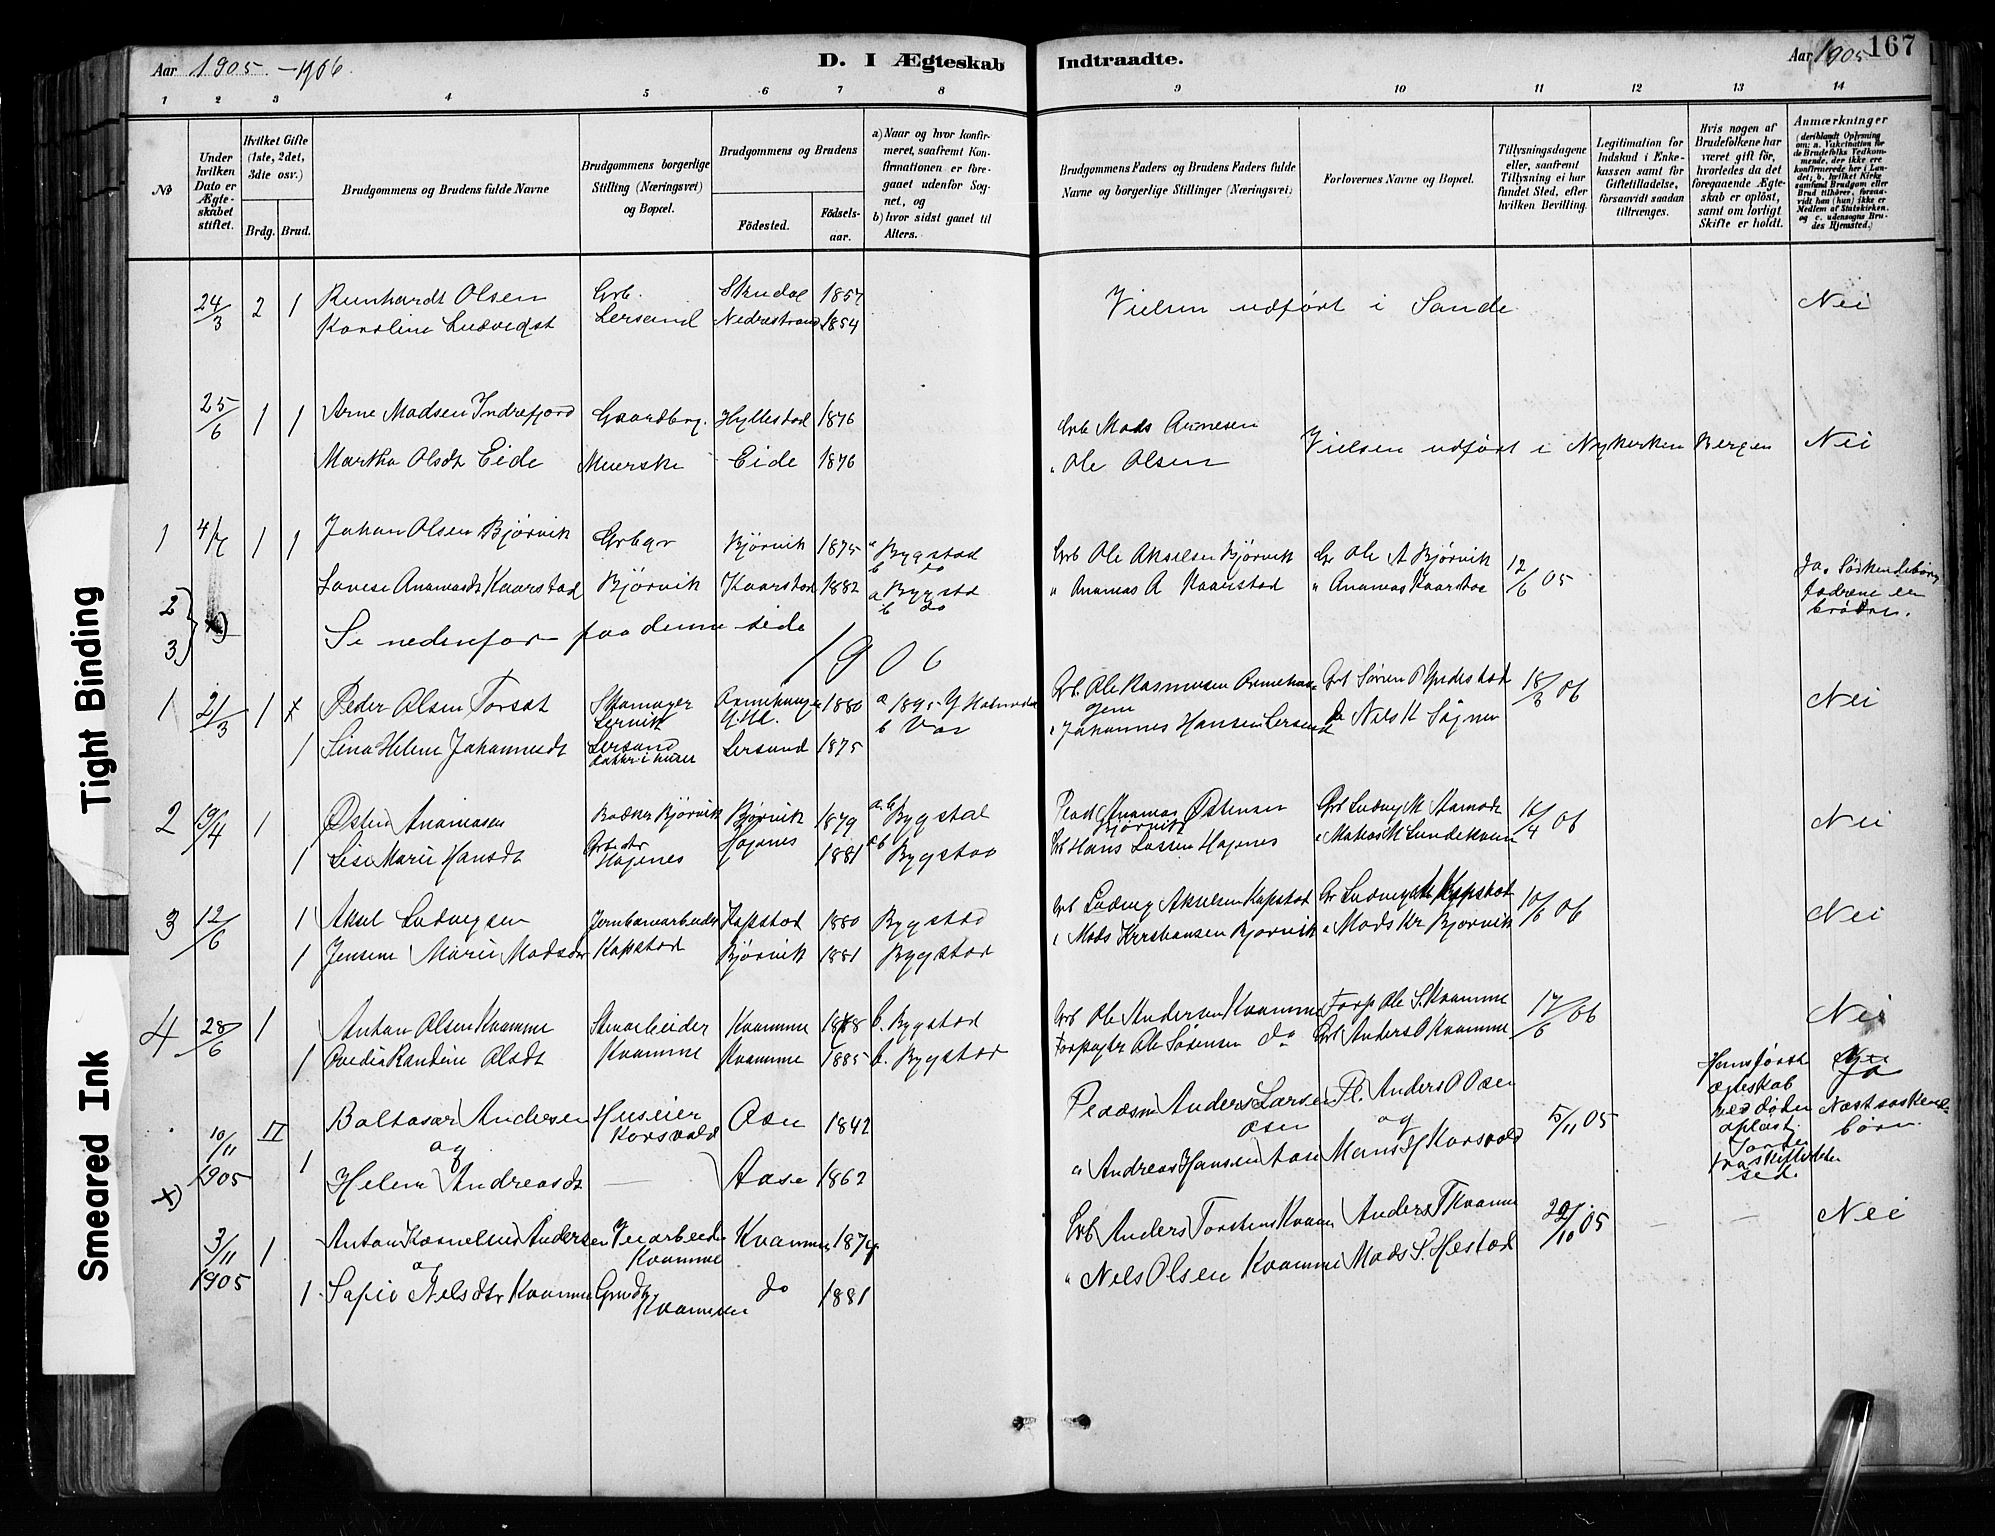 Aar 1905.-1906.
D. I Ægteskab Indtraadte.
Aar 1905
167
1 2 3 4 5 6 7 8 9 10 11 12 13 14
No
Under hvilken Dato er Ægteskabet stiftet.
Hvilket Gifte (1ste, 2det, 3die osv.)
Brdg. Brud.
Brudgommens og Brudens fulde Navne
Brudgommens borgerlige Stilling (Næringsvei) og Bopæl.
Brudgommens og Brudens
Födested.
Födselsaar.
a) Naar og hvor konfirmeret, saafremt Konfirmationen er foregaaet udenfor Sognet, og
b) hvor sidst gaaet til Alters.
Brudgommens Faders og Brudens Faders fulde Navne og borgerlige Stillinger (Næringsvei)
Forlovernes Navne og Bopæl.
Tillysningsdagene eller, saafremt Tillysning ei har fundet Sted, efter hvilken Bevilling.
Legitimation for Indskud i Enkekassen samt for Giftetilladelse, forsaavidt saadan tiltrænges.
Hvis nogen af Brudefolkene har været gift för, hvorledes da det foregaaende Ægteskab er oplöst, samt om lovligt Skifte er holdt.
Anmærkninger
(deriblandt Oplysning om: a. Vaccination for de Brudefolks Vedkommende, der ikke ere konfirmerede her i Landet; b. hvilket Kirkesamfund Brudgom eller Brud tilhörer, forsaavidt han (hun) ikke er Medlem af Statskirken. og c. udensogns Brudes Hjemsted.)
24/3 2 1 Runhardt Olsen Grb. Skudal 1857
Karoline Ludvigsdt Lersund Nedrestrand 1854
Vielsen udført i Sande Nei
25/6 1 1 Arne Madsen Indrefjord Gaardbrg. Hyllestad 1876
Grb Mads Arnesen
Martha Olsdt Eide Meierske Eide 1876
" Ole Olsen
Vielsen udført i Nykerken Bergen Nei
1 4/7 1 1 Johan Olsen Bjørvik Grbgr Bjørvik 1875 a Bygstad b do
Grb Ole Akselsen Bjørvik Gr Ole A Bjørvik 12/6 05
Lovise Ananiasdt Kaarstad Bjørvik Kaarstad 1882 a Bygstd b do
" Ananias A Kaarstad " Ananias Kaarstad
Ja. Søskendebørn
Fædrene er brødre.
2 3 x) Se nedenfor paa denne side
1906
1 21/3 1 Peder Olsen Torsæt Skomager Lervik 1880 a 1895 b Vor
Grb. Ole Rasmusen Grb Søren P Yndestad 18/3 06 Nei
1 Sina Helene Johannesdt Lersund Lersund 1875
" Johannes Hansen Lersund Nils K Sögnen
2 19/4 1 Østen Ananiasen Bødker Bjørvik Bjørvik 1879 a b Bygstad
Ananias Østensen Bjørvik Grb Ludvig M 16/4 06 Nei
1 Lise Marie Hansdt Hojenes Hojenes 1881 a b Bygstad
Grb Hans Lassen Hojenes
3 12/6 1 Aksel Ludvigsen Jernbanearbeider Kapstad 1880 Bygstad
Grb Ludvig Akselsen Kapstad Gr Ludvig A Kapstad 10/6 06 Nei
1 Jensine Marie Madsdtr Kapstad Bjørvik 1881 Bygstad
" Mads Kristiansen Bjørvik " Mads Kr Bjørvik
4 28/6 1 Anton Olsen Kvamme Stenarbeider Kvamme 1878 b. Bygstad
Grb Ole Andersen Kvamme Forp Ole S. Kvamme 17/6 06 Nei
1 Ovedia Randine Olsdt Kvamme Kvamme 1885 b. Bygstad
Forpagter Ole Sørensen do Grb Anders O Kvamme
10/11 1905 II Baltasar Andersen Huseier Korsvold Osen 1842
og
Anders Larsen Osen Anders O Osen
og
5/11 05
Hans første ægteskab ved døden opløst.
Ja
Næstsøskendebörn
x) 1 Helene Andreasdt — Aase 1862
" Andreas Hansen Aase Korsvold
3/11 1905 1 Anton Kornelius Andersen Veiarbeider Kvamme Kvamme 1874
og
Grb Anders Torstens Kvamme Anders T Kvamme 29/10 05 — — Nei
1 Sofie Nelsdtr Kvamme Grudt Kvammen do 1881
" Nels Olsen Kvamme Mads S. Hestad
Tight Binding
Smeared Ink